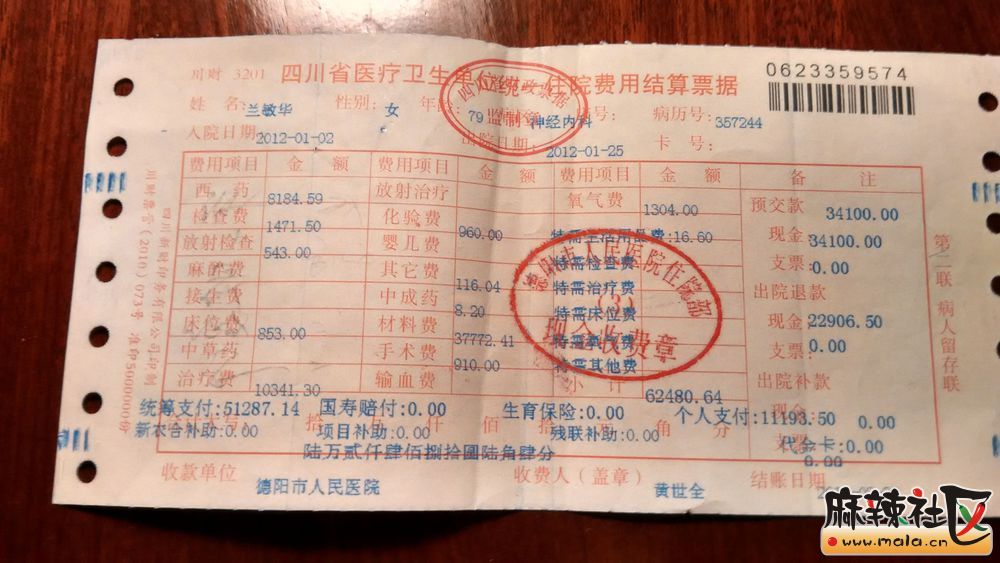 川财 3201 四川省医疗卫生单位 住院费用结算票据 0623359574
姓名: 兰敏华 性别: 女 年龄: 79 神经内科 号: 病历号: 357244
入院日期: 2012-01-02 出院日期: 2012-01-25 卡号:
四川 财政票据
监制章
费用项目 金额 费用项目 金额 费用项目 金额 备注
西药 8184.59 放射治疗 氧气费 1304.00 预交款 34100.00
检查费 1471.50 化验费 960.00 特需生活用品费:16.60 现金: 34100.00
放射检查 543.00 婴儿费 特需检查费 支票: 0.00
麻醉费 其它费 116.04 特需治疗费 出院退款
接生费 中成药 8.20 特需床位费 现金: 22906.50
床位费 853.00 材料费 37772.41 特需 费 支票: 0.00
中草药 手术费 910.00 特需其他费 出院补款
治疗费 10341.30 输血费 小计 62480.64 现金:
统筹支付:51287.14 国寿赔付:0.00 生育保险:0.00 个人支付:11193.50 0.00
新农合补助:0.00 项目补助:0.00 残联补助:0.00 代金卡:0.00
0.00
陆万贰仟肆佰捌拾圆陆角肆分
收款单位 德阳市人民医院 收费人（盖章） 黄世全 结账日期
德阳市人民医院住院部
(3)
现金收费章
第二联 病人留存联
麻辣社区
www.mala.cn